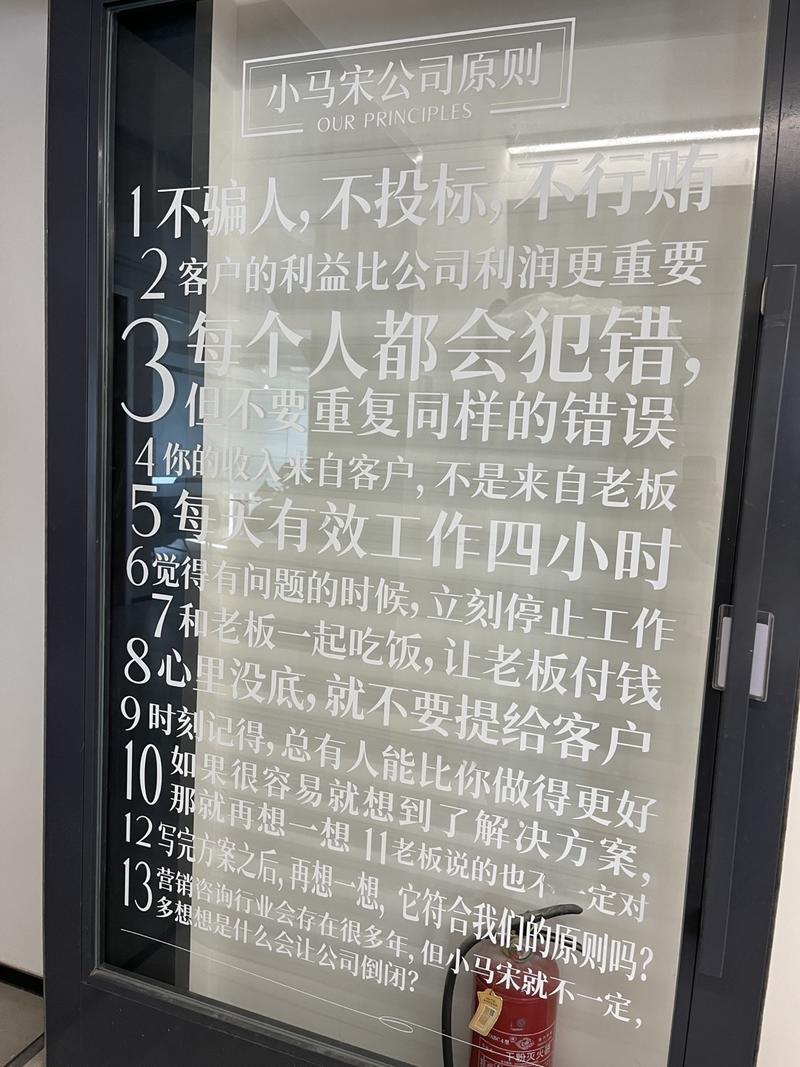 小马宋公司原则
OUR PRINCIPLES
1 不骗人，不投标，不行贿
2 客户的利益比公司利润更重要
3 每个人都会犯错，
但不要重复同样的错误
4 你的收入来自客户，不是来自老板
5 每天有效工作四小时
6 觉得有问题的时候，立刻停止工作
7 和老板一起吃饭，让老板付钱
8 心里没底，就不要提给客户
9 时刻记得，总有人能比你做得更好
10 如果很容易就想到了解决方案，
那就再想一想 11 老板说的也不一定对
12 写完方案之后，再想一想，它符合我们的原则吗？
13 营销咨询行业会存在很多年，但小马宋就不一定，
多想想是什么会让公司倒闭？
干粉灭火器